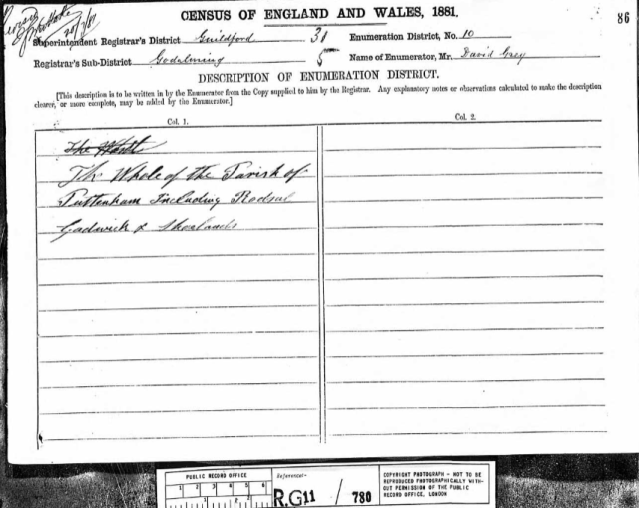 CENSUS OF ENGLAND AND WALES, 1881.
86
Superintendent Registrar's District Guildford 30
Enumeration District, No. 10
Registrar's Sub-District Godalming 5
Name of Enumerator, Mr. David Grey
DESCRIPTION OF ENUMERATION DISTRICT.
[This description is to be written in by the Enumerator from the Copy supplied to him by the Registrar. Any explanatory notes or observations calculated to make the description
clearer, or more complete, may be added by the Enumerator.]
Col. 1.
Col. 2.
The
The Whole of the Parish of
Puttenham Including Rodsal
Gadwick & Shoelands
PUBLIC RECORD OFFICE
1 2 3 4 5 6
1 2
Reference:-
R.G 11 / 780
COPYRIGHT PHOTOGRAPH - NOT TO BE
REPRODUCED PHOTOGRAPHICALLY WITH-
OUT PERMISSION OF THE PUBLIC
RECORD OFFICE, LONDON